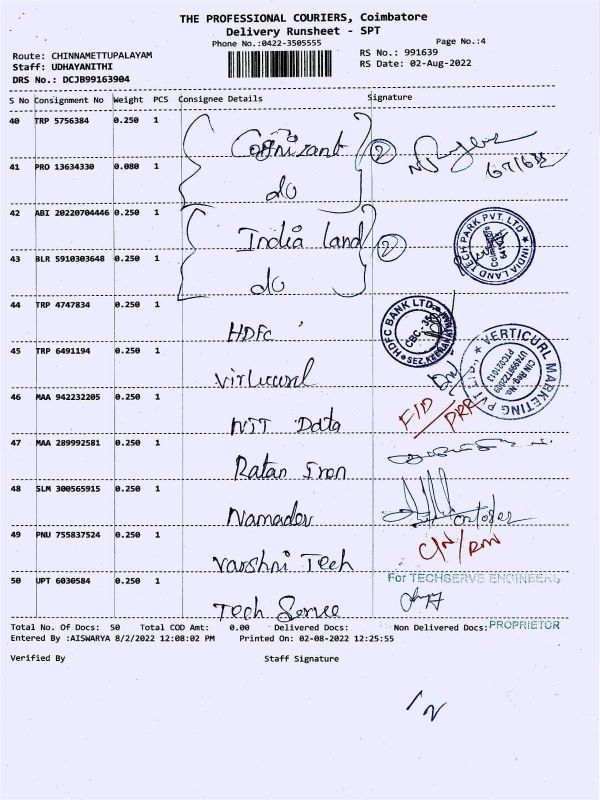 THE PROFESSIONAL COURIERS, Coimbatore
Delivery Runsheet - SPT
Phone No.:0422-3505555
Page No.:4
Route: CHINNAMETTUPALAYAM
RS No.: 991639
Staff: UDHAYANITHI
RS Date: 02-Aug-2022
DRS No.: DCJB99163904
S No Consignment No Weight PCS Consignee Details Signature
40 TRP 5756384 0.250 1
Cognizant 2
41 PRO 13634330 0.080 1
do
42 ABI 20220704446 0.250 1
India land 2
INDIA LAND TECH PARK PVT. LTD
43 BLR 5910303648 0.250 1
do
44 TRP 4747834 0.250 1
HDFC
HDFC BANK LTD.
CBC-35
SEZ, KEERANATH
45 TRP 6491194 0.250 1
VERTICURL MARKETING PVT LTD
CIN Reg. No.
46 MAA 942232205 0.250 1
NTT Data
47 MAA 289992581 0.250 1
Ratan Iron
48 SLM 300565915 0.250 1
Namadev
49 PNU 755837524 0.250 1
Varshni Tech
50 UPT 6030584 0.250 1
For TECHSERVE ENGINEERS
Tech Serve
Total No. Of Docs: 50 Total COD Amt: 0.00 Delivered Docs: Non Delivered Docs:
PROPRIETOR
Entered By :AISWARYA 8/2/2022 12:08:02 PM Printed On: 02-08-2022 12:25:55
Verified By Staff Signature